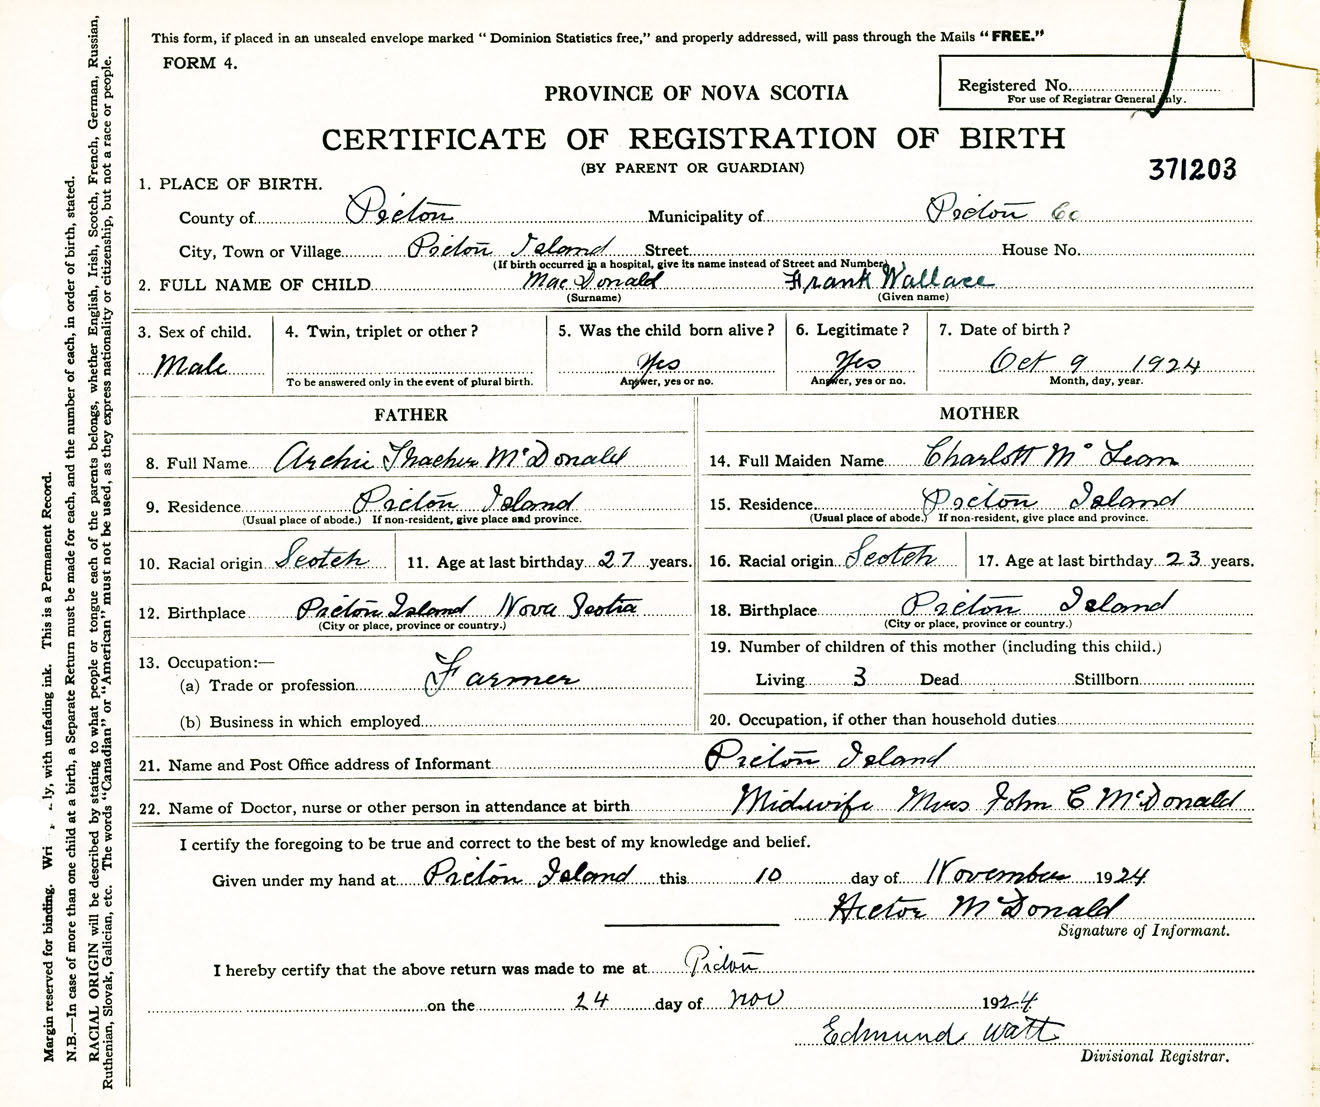 This form, if placed in an unsealed envelope marked “ Dominion Statistics free,” and properly addressed, will pass through the Mails “ FREE.”
FORM 4.
Registered No.
For use of Registrar General only.
PROVINCE OF NOVA SCOTIA
CERTIFICATE OF REGISTRATION OF BIRTH
(BY PARENT OR GUARDIAN)
371203
1. PLACE OF BIRTH.
County of Pictou Municipality of Pictou Co
City, Town or Village Pictou Island Street House No.
(If birth occurred in a hospital, give its name instead of Street and Number)
2. FULL NAME OF CHILD Mac Donald Frank Wallace
(Surname) (Given name)
3. Sex of child. 4. Twin, triplet or other ? 5. Was the child born alive ? 6. Legitimate ? 7. Date of birth ?
Male Yes Yes Oct 9 1924
To be answered only in the event of plural birth. Answer, yes or no. Answer, yes or no. Month, day, year.
FATHER MOTHER
8. Full Name Archie Thacher McDonald
14. Full Maiden Name Charlott Mc Lean
9. Residence Pictou Island
(Usual place of abode.) If non-resident, give place and province.
15. Residence Pictou Island
(Usual place of abode.) If non-resident, give place and province.
10. Racial origin Scotch 11. Age at last birthday 27 years.
16. Racial origin Scotch 17. Age at last birthday 23 years.
12. Birthplace Pictou Island Nova Scotia
(City or place, province or country.)
18. Birthplace Pictou Island
(City or place, province or country.)
13. Occupation:—
(a) Trade or profession Farmer
(b) Business in which employed
19. Number of children of this mother (including this child.)
Living 3 Dead Stillborn
20. Occupation, if other than household duties
21. Name and Post Office address of Informant Pictou Island
22. Name of Doctor, nurse or other person in attendance at birth Midwife Mrs John C McDonald
I certify the foregoing to be true and correct to the best of my knowledge and belief.
Given under my hand at Pictou Island this 10 day of November 1924
Hector McDonald
Signature of Informant.
I hereby certify that the above return was made to me at Pictou
on the 24 day of Nov 1924
Edmund Watt
Divisional Registrar.
Margin reserved for binding. Wri ly, with unfading ink. This is a Permanent Record.
N.B.—In case of more than one child at a birth, a Separate Return must be made for each, and the number of each, in order of birth, stated.
RACIAL ORIGIN will be described by stating to what people or tongue each of the parents belongs, whether English, Irish, Scotch, French, German, Russian,
Ruthenian, Slovak, Galician, etc. The words “Canadian” or “American” must not be used, as they express nationality or citizenship, but not a race or people.